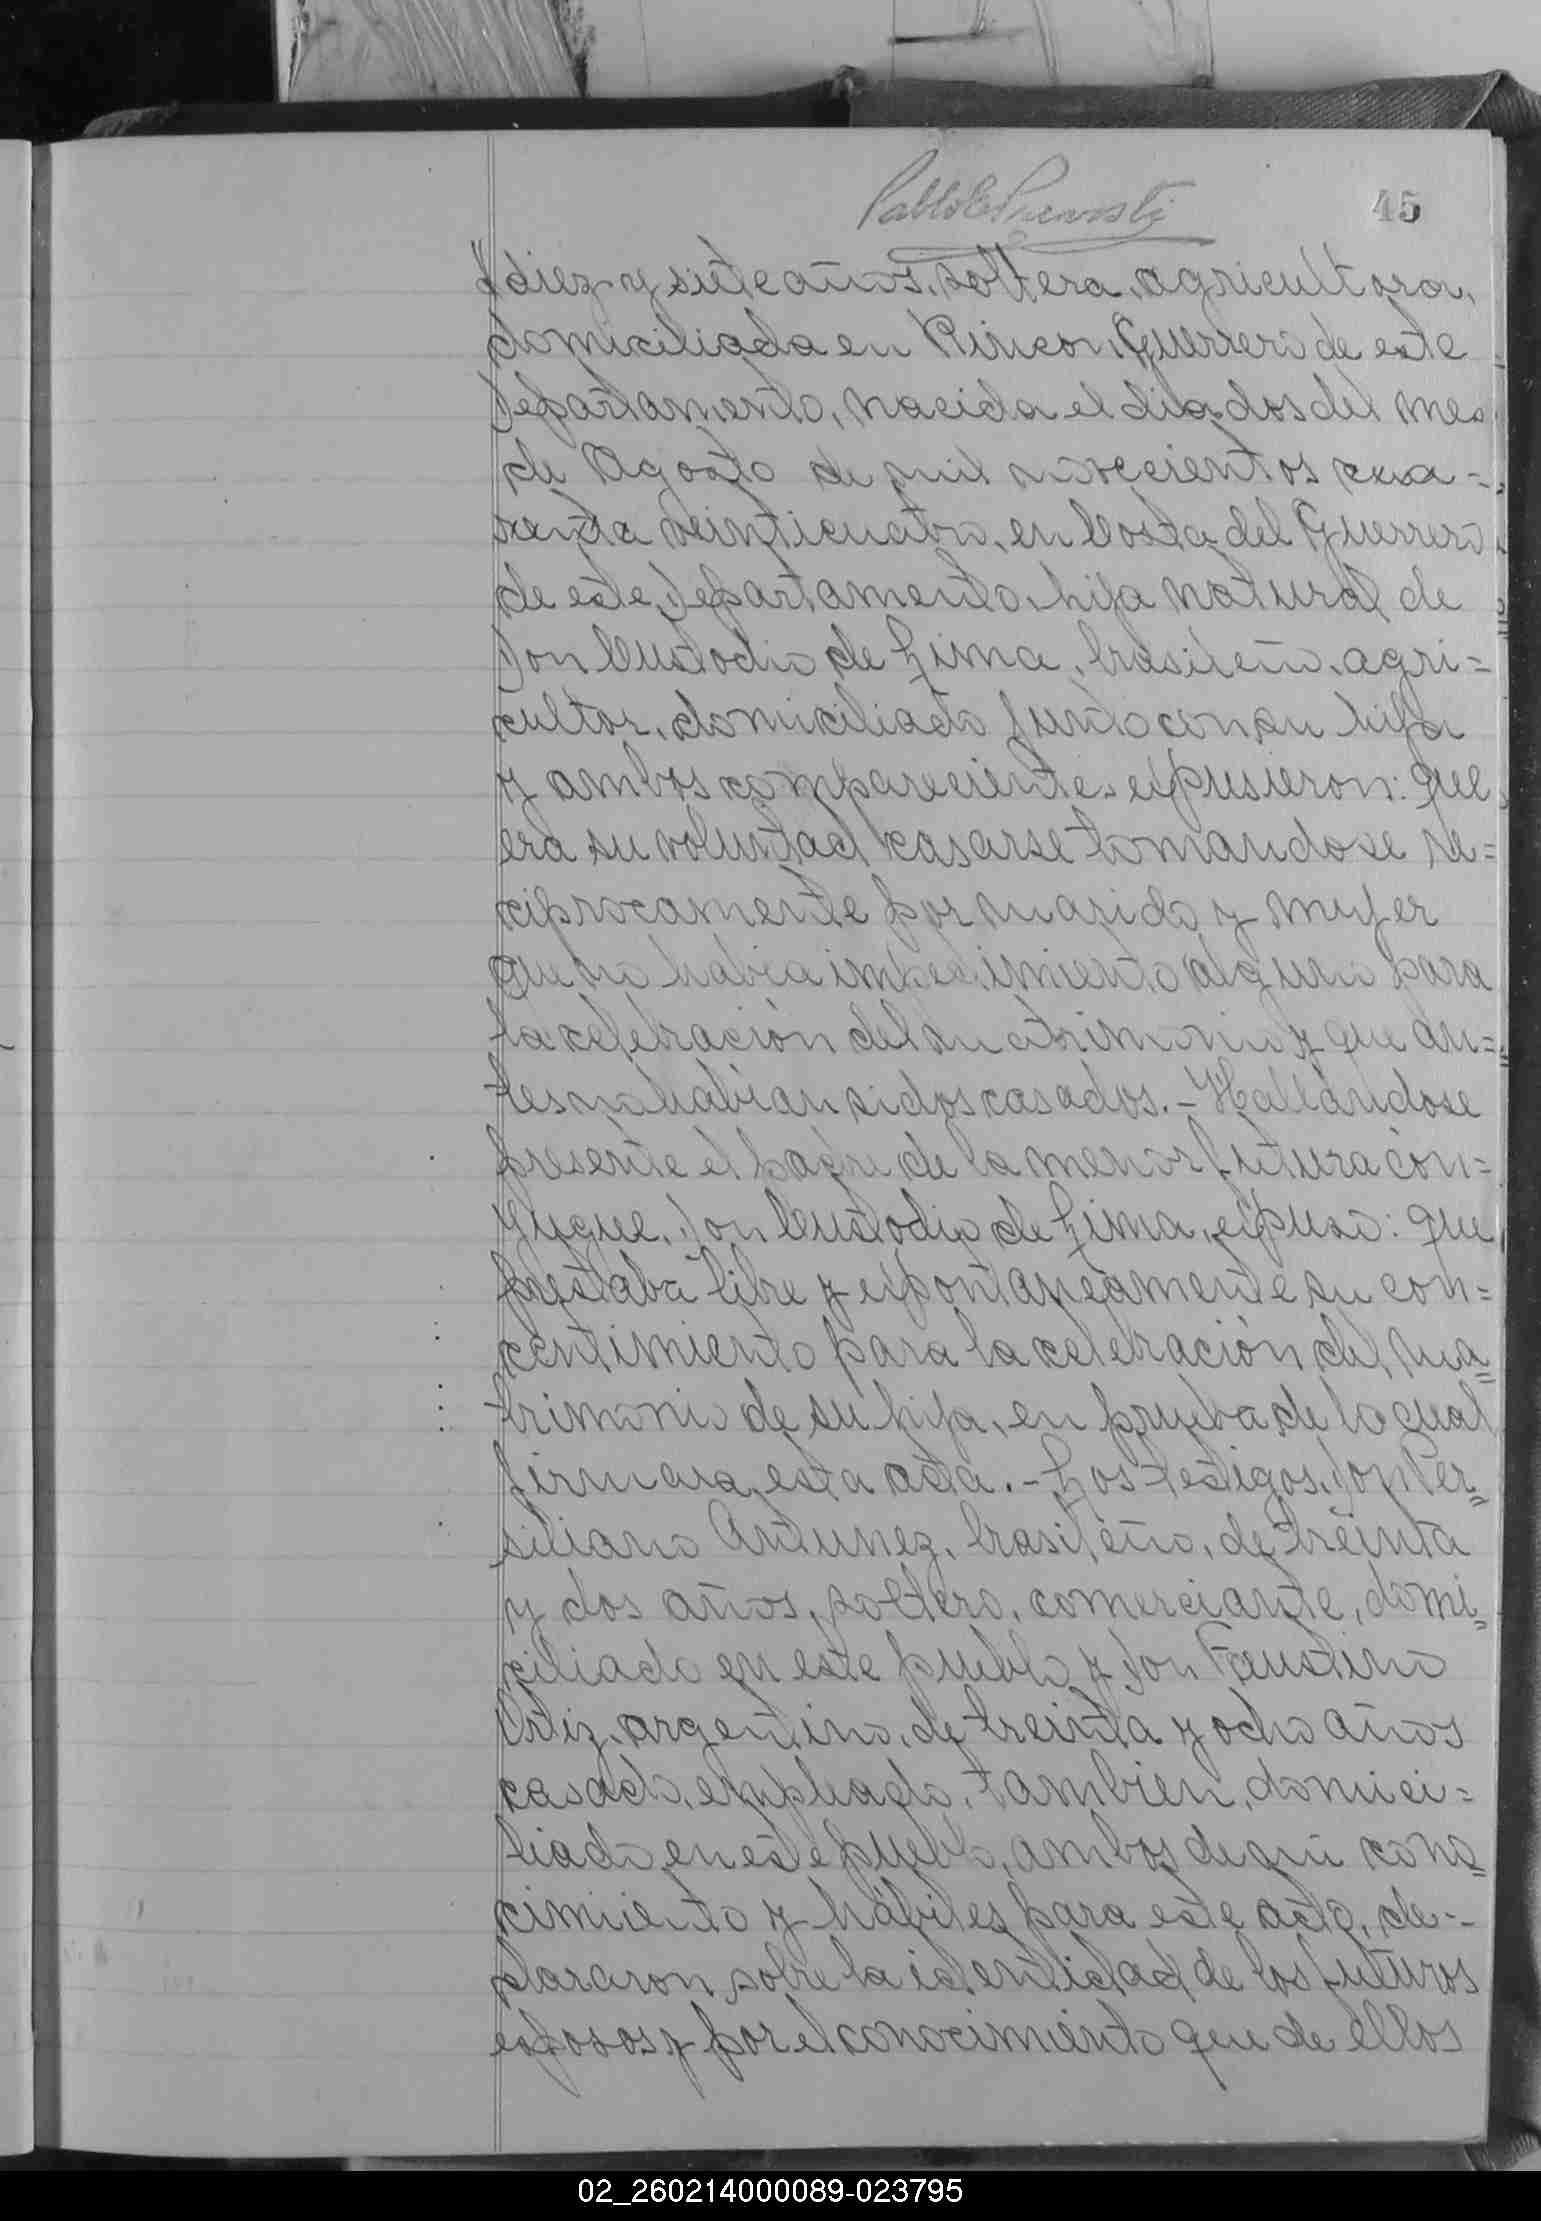 Pablo E Prevosti
45
diez y siete años, soltera, agricultora,
domiciliada en Rincon Guerrero de este
Departamento, nacida el dia dos del mes
de Agosto de mil novecientos cua=
renta veinticuatro, en Costa del Guerrero
de este Departamento, hija natural de
Don Custodio de Lima, brasileño, agri=
cultor, domiciliado junto con su hija
y ambos comparecientes expusieron: que
era su voluntad casarse tomandose re=
ciprocamente por marido y mujer
que no habia impedimiento alguno para
la celebración del matrimonio y que an=
tes no habian sidos casados.- Hallándose
presente el padre de la menor futura cón=
yugue, Don Custodio de Lima, expuso: que
prestaba libre y expontaneamente su con=
centimiento para la celebración del ma=
trimonio de su hija, en prueba de lo cual
firmara esta acta.- Los testigos, Don Per=
siliano Antunez, brasileño, de treinta
y dos años, soltero, comerciante, domi=
ciliado en este pueblo y Don Faustino
Ortiz, argentino, de treinta y ocho años
casado, empleado, tambien, domici=
liado en este pueblo, ambos de mi cono=
cimiento y hábiles para este acto, de=
clararon sobre la identidad de los futuros
esposos y por el conocimiento que de ellos
02_260214000089-023795